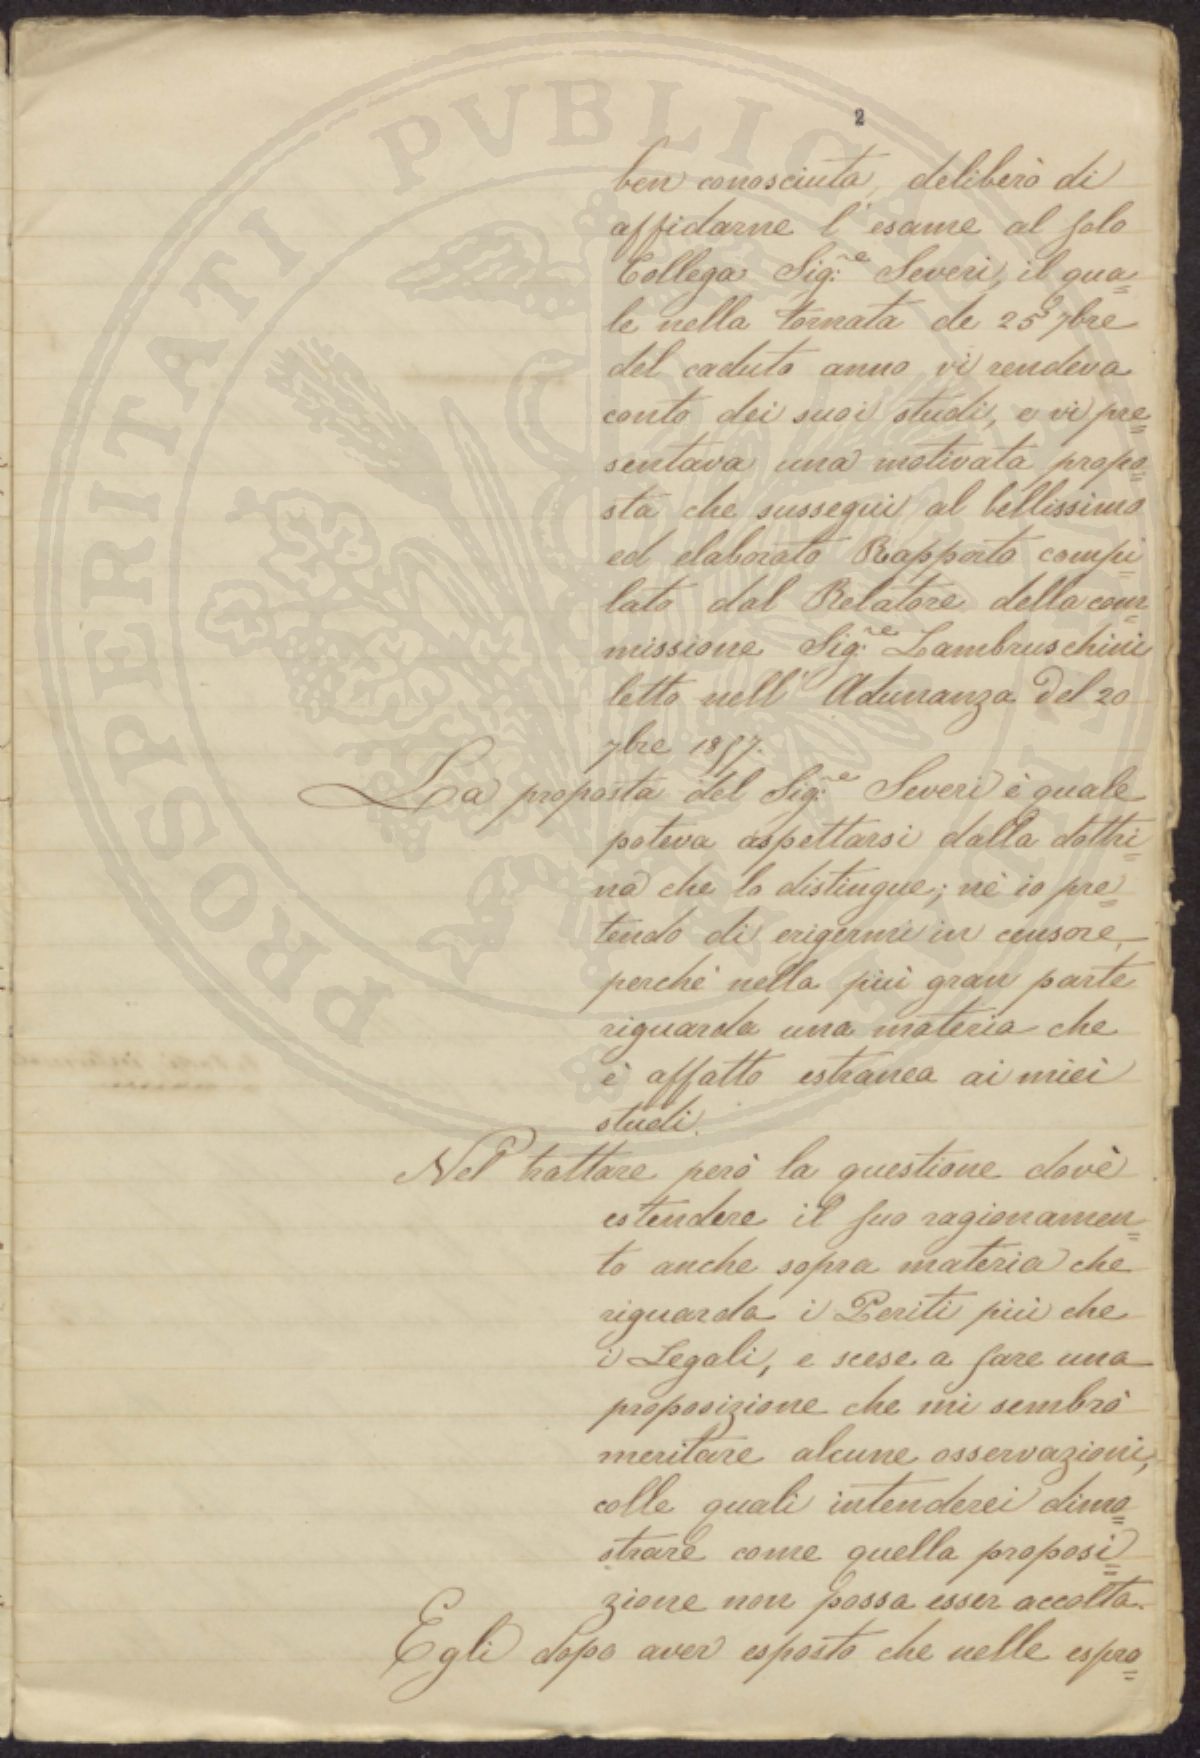 2
ben conosciuta, deliberò di
affidarne l'esame al solo
Collega Sig:re Severi, il qua=
le nella tornata de 25 7bre
del caduto anno vi rendeva
conto dei suoi studi, e vi pre=
sentava una motivata propo=
sta che susseguì al bellissimo
ed elaborato Rapporto compi=
lato dal Relatore della com=
missione Sig:re Lambruschini
letto nell'Adunanza del 20
7bre 1857.
La proposta del Sig:re Severi è quale
poteva aspettarsi dalla dottri=
na che lo distingue; nè io pre=
tendo di erigermi in censore,
perchè nella più gran parte
riguarda una materia che
è affatto estranea ai miei
studi.
Nel trattare però la questione dovè
estendere il suo ragionamen=
to anche sopra materia che
riguarda i Periti più che
i Legali, e scese a fare una
proposizione che mi sembrò
meritare alcune osservazioni,
colle quali intenderei dimo=
strare come quella proposi=
zione non possa esser accolta.
Egli dopo aver esposto che nelle espro=
PROSPERITATI PVBLICAE